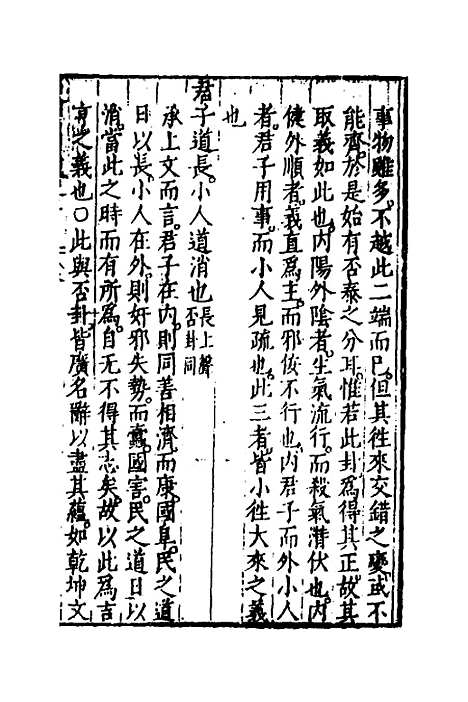 事物雖多。不越此二端而已。但其徃來交錯之變。或不
能齊。於是始有否泰之分耳。惟若此卦爲得其正。故其
取義如此也。内陽外隂者。生氣流行。而殺氣潜伏也。内
健外順者。義直爲主。而邪佞不行也。内君子而外小人
者。君子用事。而小人見疏也。此三者。皆小徃大來之義
也
君子道長。小人道消也長上聲否卦同
承上文而言。君子在内。則同善相濟。而康國阜民之道
日以長。小人在外。則奸邪失勢。而蠹國害民之道日以
消。當此之時而有所爲。自无不得其志矣。故以此爲吉
亨之義也〇此與否卦。皆廣名辭以盡其蘊。如乾坤文